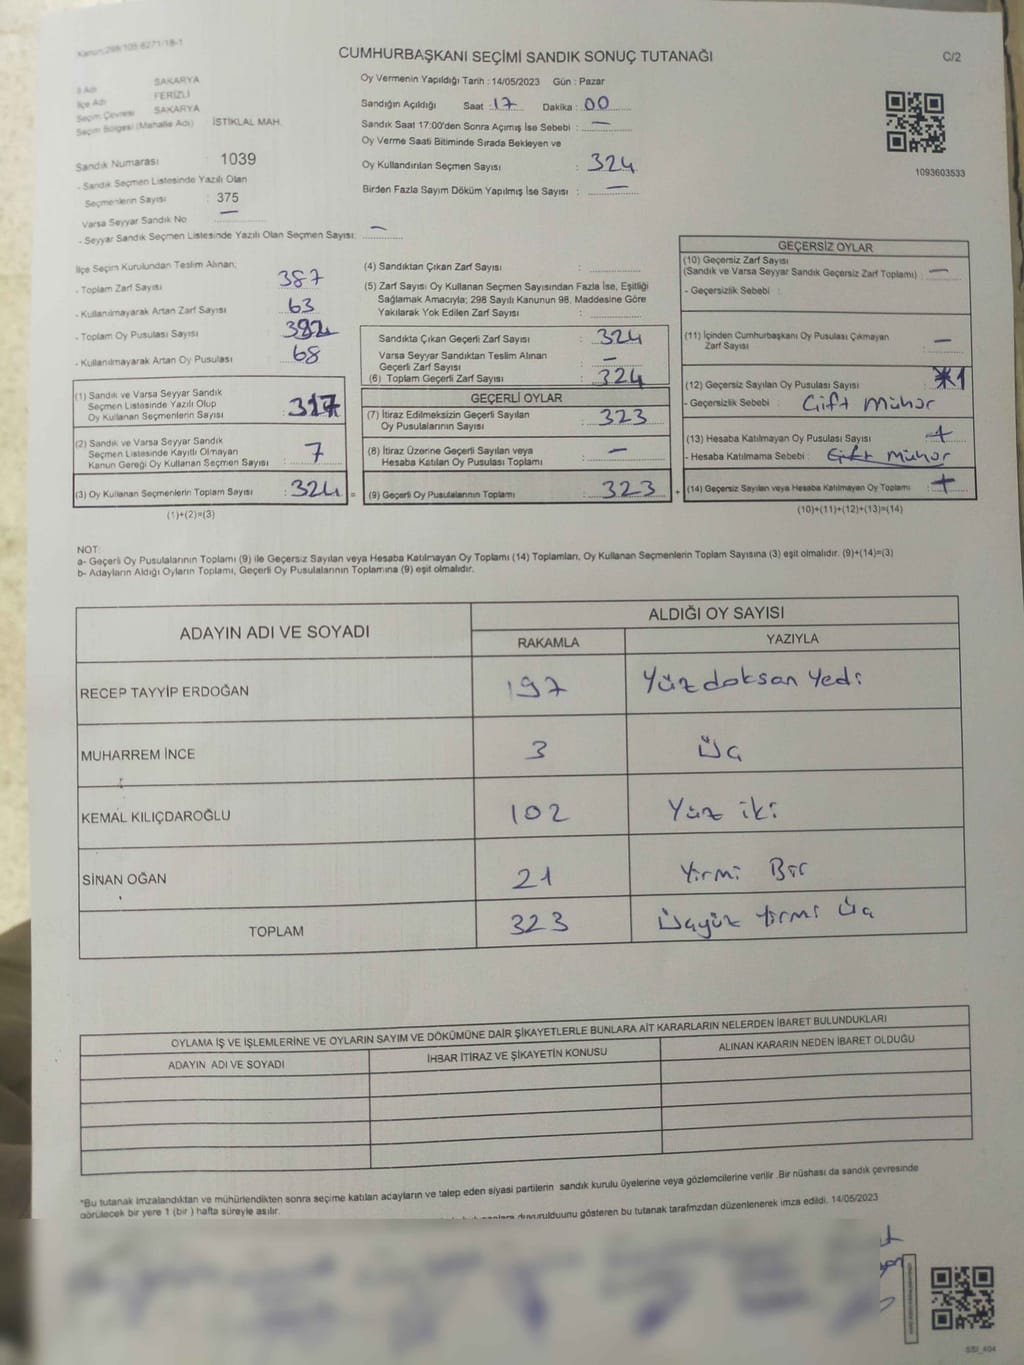 Kanun:298/105 6271/18-1
CUMHURBAŞKANI SEÇİMİ SANDIK SONUÇ TUTANAĞI
C/2
İl Adı SAKARYA
İlçe Adı FERİZLİ
Seçim Çevresi SAKARYA
Seçim Bölgesi (Mahalle Adı) İSTİKLAL MAH.
Sandık Numarası 1039
- Sandık Seçmen Listesinde Yazılı Olan
Seçmenlerin Sayısı : 375
Varsa Seyyar Sandık No —
- Seyyar Sandık Seçmen Listesinde Yazılı Olan Seçmen Sayısı: —
Oy Vermenin Yapıldığı Tarih : 14/05/2023 Gün : Pazar
Sandığın Açıldığı Saat : 17 Dakika : 00
Sandık Saat 17:00'den Sonra Açımış İse Sebebi : —
Oy Verme Saati Bitiminde Sırada Bekleyen ve
Oy Kullandırılan Seçmen Sayısı : 324
Birden Fazla Sayım Döküm Yapılmış İse Sayısı : —
1093603533
İlçe Seçim Kurulundan Teslim Alınan;
- Toplam Zarf Sayısı : 387
- Kullanılmayarak Artan Zarf Sayısı : 63
- Toplam Oy Pusulası Sayısı : 392
- Kullanılmayarak Artan Oy Pusulası : 68
(1) Sandık ve Varsa Seyyar Sandık
Seçmen Listesinde Yazılı Olup
Oy Kullanan Seçmenlerin Sayısı : 317
(2) Sandık ve Varsa Seyyar Sandık
Seçmen Listesinde Kayıtlı Olmayan
Kanun Gereği Oy Kullanan Seçmen Sayısı : 7
(3) Oy Kullanan Seçmenlerin Toplam Sayısı : 324 =
(1)+(2)=(3)
(4) Sandıktan Çıkan Zarf Sayısı :
(5) Zarf Sayısı Oy Kullanan Seçmen Sayısından Fazla İse, Eşitliği
Sağlamak Amacıyla; 298 Sayılı Kanunun 98. Maddesine Göre
Yakılarak Yok Edilen Zarf Sayısı :
Sandıkta Çıkan Geçerli Zarf Sayısı : 324
Varsa Seyyar Sandıktan Teslim Alınan
Geçerli Zarf Sayısı : —
(6) Toplam Geçerli Zarf Sayısı : 324
GEÇERLİ OYLAR
(7) İtiraz Edilmeksizin Geçerli Sayılan
Oy Pusulalarının Sayısı : 323
(8) İtiraz Üzerine Geçerli Sayılan veya
Hesaba Katılan Oy Pusulası Toplamı : —
(9) Geçerli Oy Pusulalarının Toplamı : 323 +
GEÇERSİZ OYLAR
(10) Geçersiz Zarf Sayısı
(Sandık ve Varsa Seyyar Sandık Geçersiz Zarf Toplamı) : —
- Geçersizlik Sebebi :
(11) İçinden Cumhurbaşkanı Oy Pusulası Çıkmayan
Zarf Sayısı : —
(12) Geçersiz Sayılan Oy Pusulası Sayısı : 1
- Geçersizlik Sebebi : Çift Mühür
(13) Hesaba Katılmayan Oy Pusulası Sayısı :
- Hesaba Katılmama Sebebi : Çift Mühür
(14) Geçersiz Sayılan veya Hesaba Katılmayan Oy Toplamı :
(10)+(11)+(12)+(13)=(14)
NOT:
a- Geçerli Oy Pusulalarının Toplamı (9) ile Geçersiz Sayılan veya Hesaba Katılmayan Oy Toplamı (14) Toplamları, Oy Kullanan Seçmenlerin Toplam Sayısına (3) eşit olmalıdır. (9)+(14)=(3)
b- Adayların Aldığı Oyların Toplamı, Geçerli Oy Pusulalarının Toplamına (9) eşit olmalıdır.
ADAYIN ADI VE SOYADI
ALDIĞI OY SAYISI
RAKAMLA YAZIYLA
RECEP TAYYİP ERDOĞAN 197 Yüz doksan Yedi
MUHARREM İNCE 3 Üç
KEMAL KILIÇDAROĞLU 102 Yüz iki
SİNAN OĞAN 21 Yirmi Bir
TOPLAM 323 Üçyüz Yirmi Üç
OYLAMA İŞ VE İŞLEMLERİNE VE OYLARIN SAYIM VE DÖKÜMÜNE DAİR ŞİKAYETLERLE BUNLARA AİT KARARLARIN NELERDEN İBARET BULUNDUKLARI
ADAYIN ADI VE SOYADI İHBAR İTİRAZ VE ŞİKAYETİN KONUSU ALINAN KARARIN NEDEN İBARET OLDUĞU
*Bu tutanak imzalandıktan ve mühürlendikten sonra seçime katılan adayların ve talep eden siyasi partilerin sandık kurulu üyelerine veya gözlemcilerine verilir .Bir nüshası da sandık çevresinde
görülecek bir yere 1 (bir ) hafta süreyle asılır.
duyurulduunu gösteren bu tutanak tarafmzdan düzenlenerek imza edildi. 14/05/2023